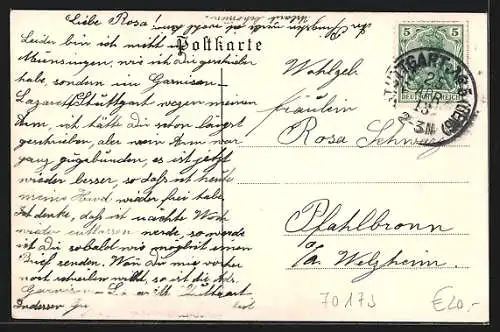 Liebe Rosa!
Postkarte
Leider bin ich nicht in
Munsingen, wie ich dir geschrieben
habe, sondern im Garnison-
Lazarett Stuttgart wegen meinen
Arm, ich hätte dir schon längst
geschrieben, aber mein Arm war
ganz gebunden, es ist jetzt
wieder besser, so daß ich heute
meine Hand wieder frei habe.
Ich denke, daß ich nächte Woch
wieder entlassen werde, so werde
ich dir sobald wie möglich einen
Brief senden. Wen du mir vorher
noch schreiben willst, so ist die Adr.
Garnison Stuttgart
Wohlgeb.
fräulein
Rosa Schwarz
Pfahlbronn
o/a Welzheim.
5 5
DEUTSCHES REICH
STUTTGART
3N
70173
€20,-